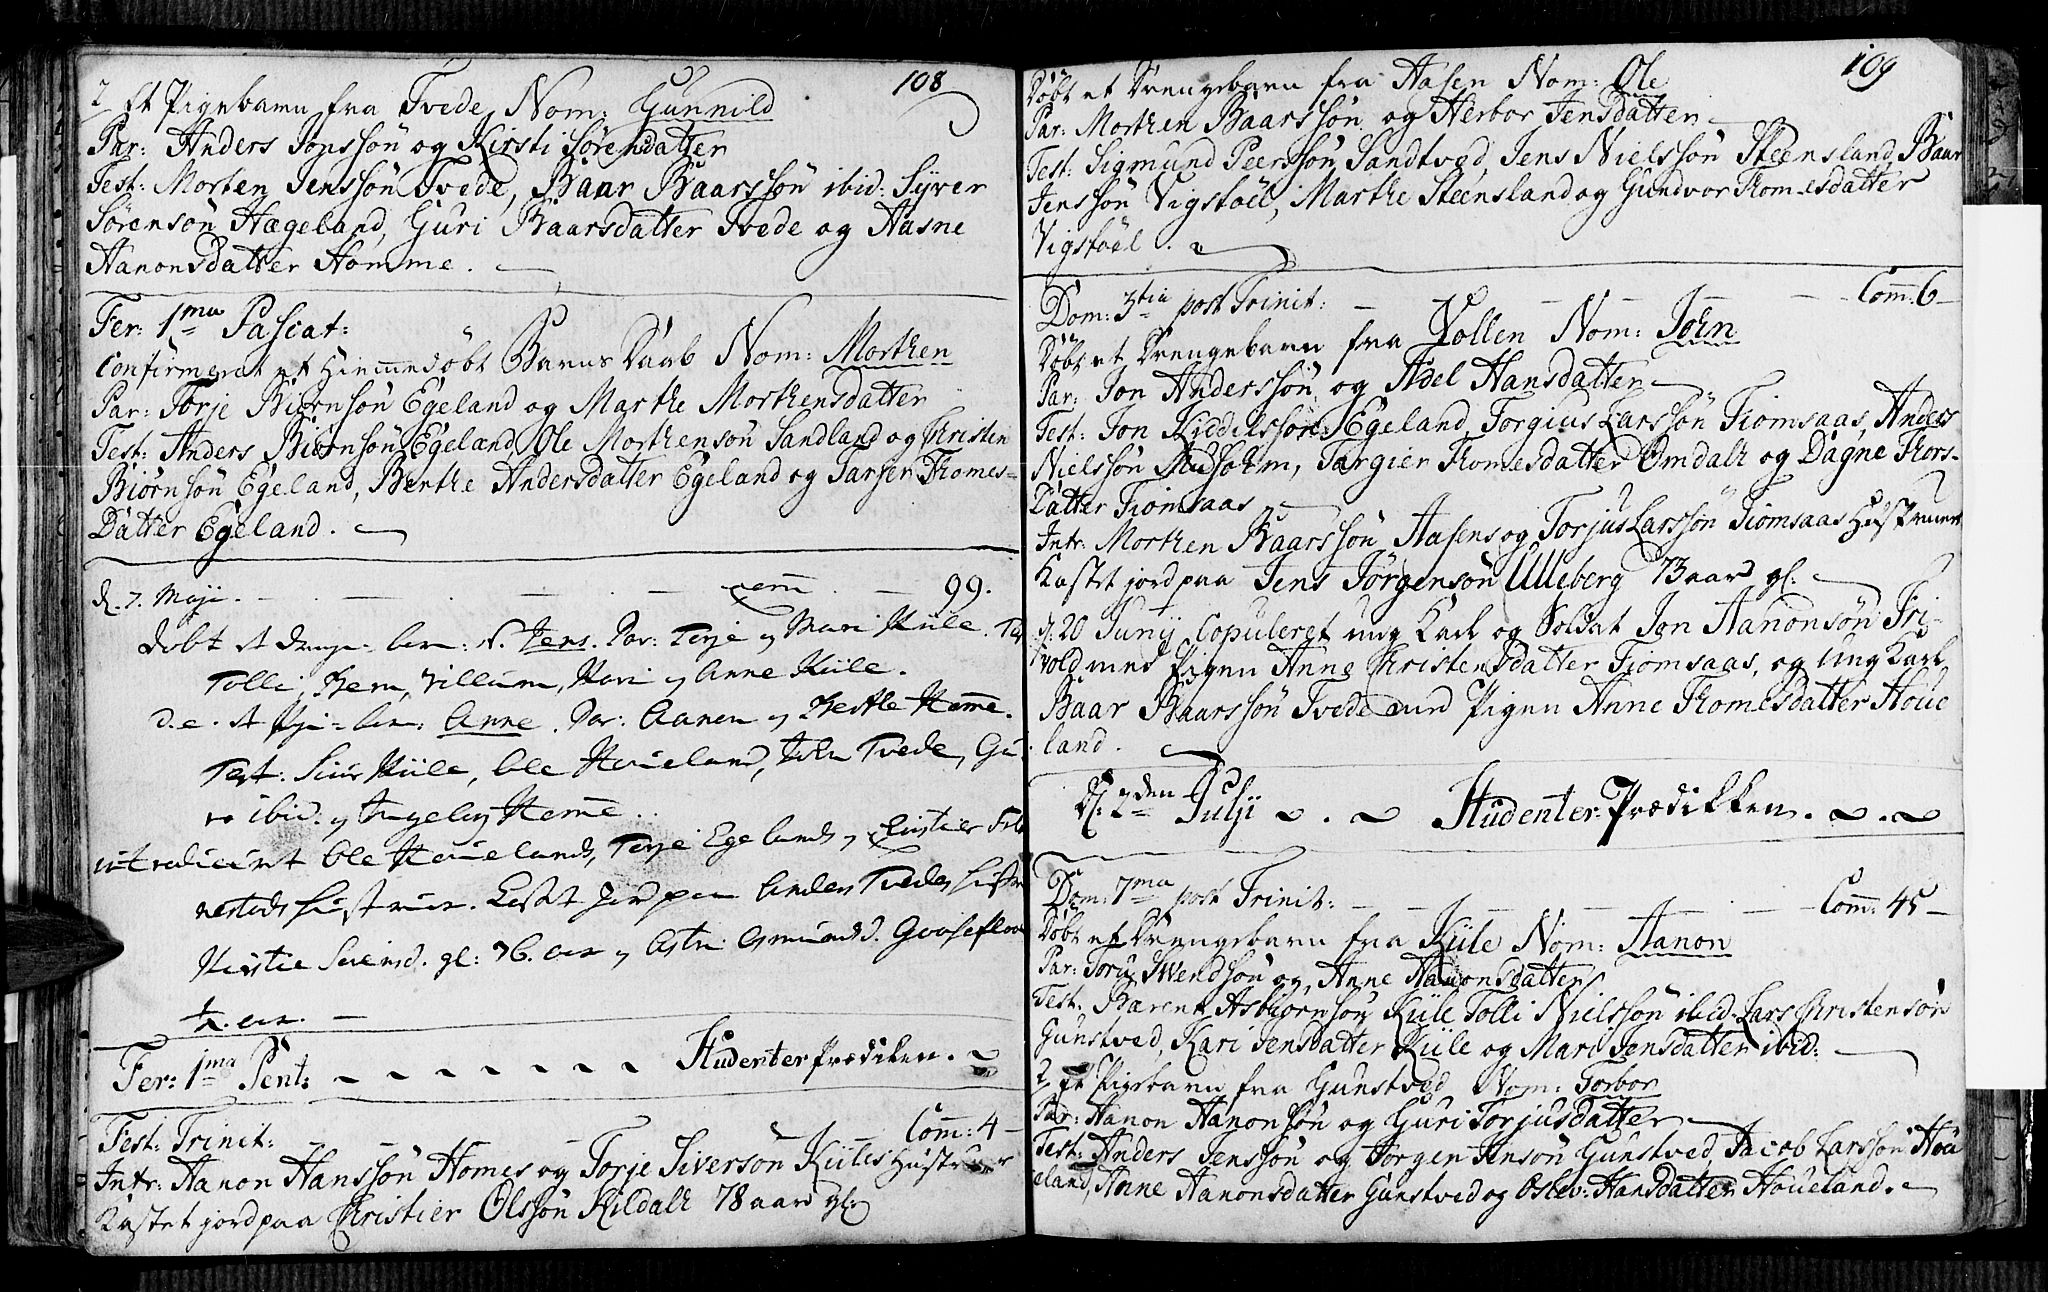 108
2/ Et Pigebarn fra Tvede Nom: Gunnild
Par: Anders Jonssøn og Kirsti Sørensdatter
Test: Morten Jenssøn Tvede, Baar Baarssøn ibid: Syver
Sørensøn Hægeland, Guri Baarsdatter Tvede og Aasne
Aanonsdatter Homme.
Fer: 1ma Pascat:
Confirmeret et Hiemmedøbt Barns Daab Nom: Morthen
Par: Torje Biørnsøn Egeland og Marthe Morthensdatter
Test: Anders Biørnsøn Egeland, Ole Morthensøn Sandland og Christen
Biørnsøn Egeland, Berthe Andersdatter Egeland og Tarjer Thomes-
Datter Egeland.
d. 7. Maji. Com 99.
døbt et drenge-barn: N. Jens. Par: Terje og Mari Kiile.
Tolli, Bern, Villum, Kari og Anne Kiile.
d.e. et Pige-barn: Anne. Par: Aanen og Berthe Homme.
Test: Siur Kiile, Ole Houeland, John Tvede, Gu-
ro ibid: og Ingeborg Homme.
introduceret Ole Houelands, Terje Egelands og Christier
Hustruer. Castet Jord paa Anders Tvedes Hustru
Kirstie Sørensd. gl: 76. aar og Astri Asmundsd. Gaaseflaa
aar.
Fer: 1ma Pent: Studenter Prædiken.
Fest: Trinit: Com: 4
Intr: Aanon Hanssøn Homes og Torje Siversøn Kiiles Hustruer
Kastet jord paa Christier Olssøn Kildahl 78 aar gl:
109
Døbt et Drengebarn fra Aasen Nom: Ole
Par: Morthen Baarssøn og Herbor Jensdatter
Test: Sigmund Peerssøn Sandtved, Jens Nielssøn Steensland, Baar
Jenssøn Vigstøel, Marthe Steensland og Gundvor Thomesdatter
Vigstøel.
Dom: 3tia post Trinit: Com: 6
Døbt et Drengebarn fra Vollen Nom: John
Par: Jon Anderssøn og Adel Hansdatter
Test: Jon Kiddelssøn Egeland, Torgius Larssøn Tiomsaas, Anders
Nielssøn Modholm, Targier Thomesdatter Omdahl og Dagne Thors-
Datter Tiomsaas
Intr: Morthen Baarssøn Aasens og Torjus Larssøn Tiomsaas Hustruer
Kastet jord paa Jens Jørgensøn Ulleberg 73 aar gl:
d. 20 Junij Copuleret ung Karl og Soldat Jon Aanonsøn Fri-
vold med Pigen Anne Christensdatter Tiomsaas, og Ung Karl
Baar Baarssøn Tvede med Pigen Anne Thomesdatter Houe
land.
D: 2den Julji Studenter: Prædikken.
Dom: 7ma post Trinit: Com: 45
Døbt et Drengebarn fra Kiile Nom: Aanon
Par: Toru Swendsøn og Anne Aanonsdatter
Test: Bærent Asbiørnsøn Kiile, Tolli Nielssøn ibid. Lars Christensøn
Gunstved, Kari Jensdatter Kiile og Mari Jensdatter ibid:
2/ Et Pigebarn fra Gunstved Nom: Torbor
Par: Aanon Aanonsøn og Guri Torjusdatter
Test: Anders Jenssøn og Jørgen Jensøn Gunstved, Jacob Larssøn Hou
eland, Anne Aanonsdatter Gunstved og Oslev: Hansdatter Houeland.